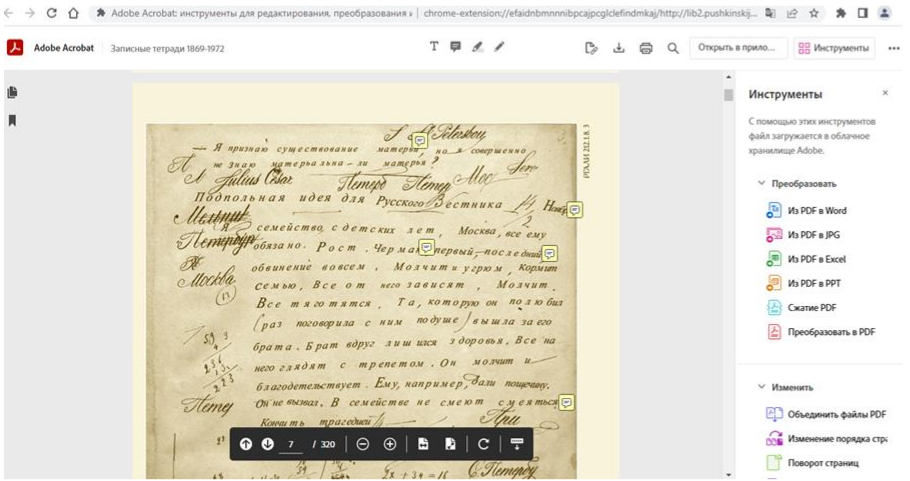 Adobe Acrobat: инструменты для редактирования, преобразования и
chrome-extension://efaidnbmnnnibpcajpcglclefindmkaj/http://lib2.pushkinskij...
Adobe Acrobat
Записные тетради 1869-1972
Открыть в прило...
Инструменты
S Peterskou
— Я признаю существование матерьи, но я совершенно
не знаю матерьяльна-ли матерья?
Julius Cesar
Петерб
Подпольная идея для Русского Вестника 14
семейство с детских лет, Москва, все ему
Петербур
обязано. Рост. Чермак первый, последний
обвинение во всем. Молчит и угрюм, кормит
Москва
семью, Все от него зависят, Молчит.
13
Все тяготятся, Та, которую он полюбил
(раз поговорила с ним по душе) вышла за его
брата. Брат вдруг лишился здоровья, Все на
него глядят с трепетом. Он молчит и
благодетельствует. Ему, например, дали пощечину,
Петер
Он не вызвал, В семействе не смеют смеяться.
Кончить трагедией
При
2x + 34 = 16
С. Петербу
РГАЛИ 212.1.8. 3
7 / 320
Инструменты
С помощью этих инструментов
файл загружается в облачное
хранилище Adobe.
Преобразовать
Из PDF в Word
Из PDF в JPG
Из PDF в Excel
Из PDF в PPT
Сжатие PDF
Преобразовать в PDF
Изменить
Объединить файлы PDF
Изменение порядка стра
Поворот страниц